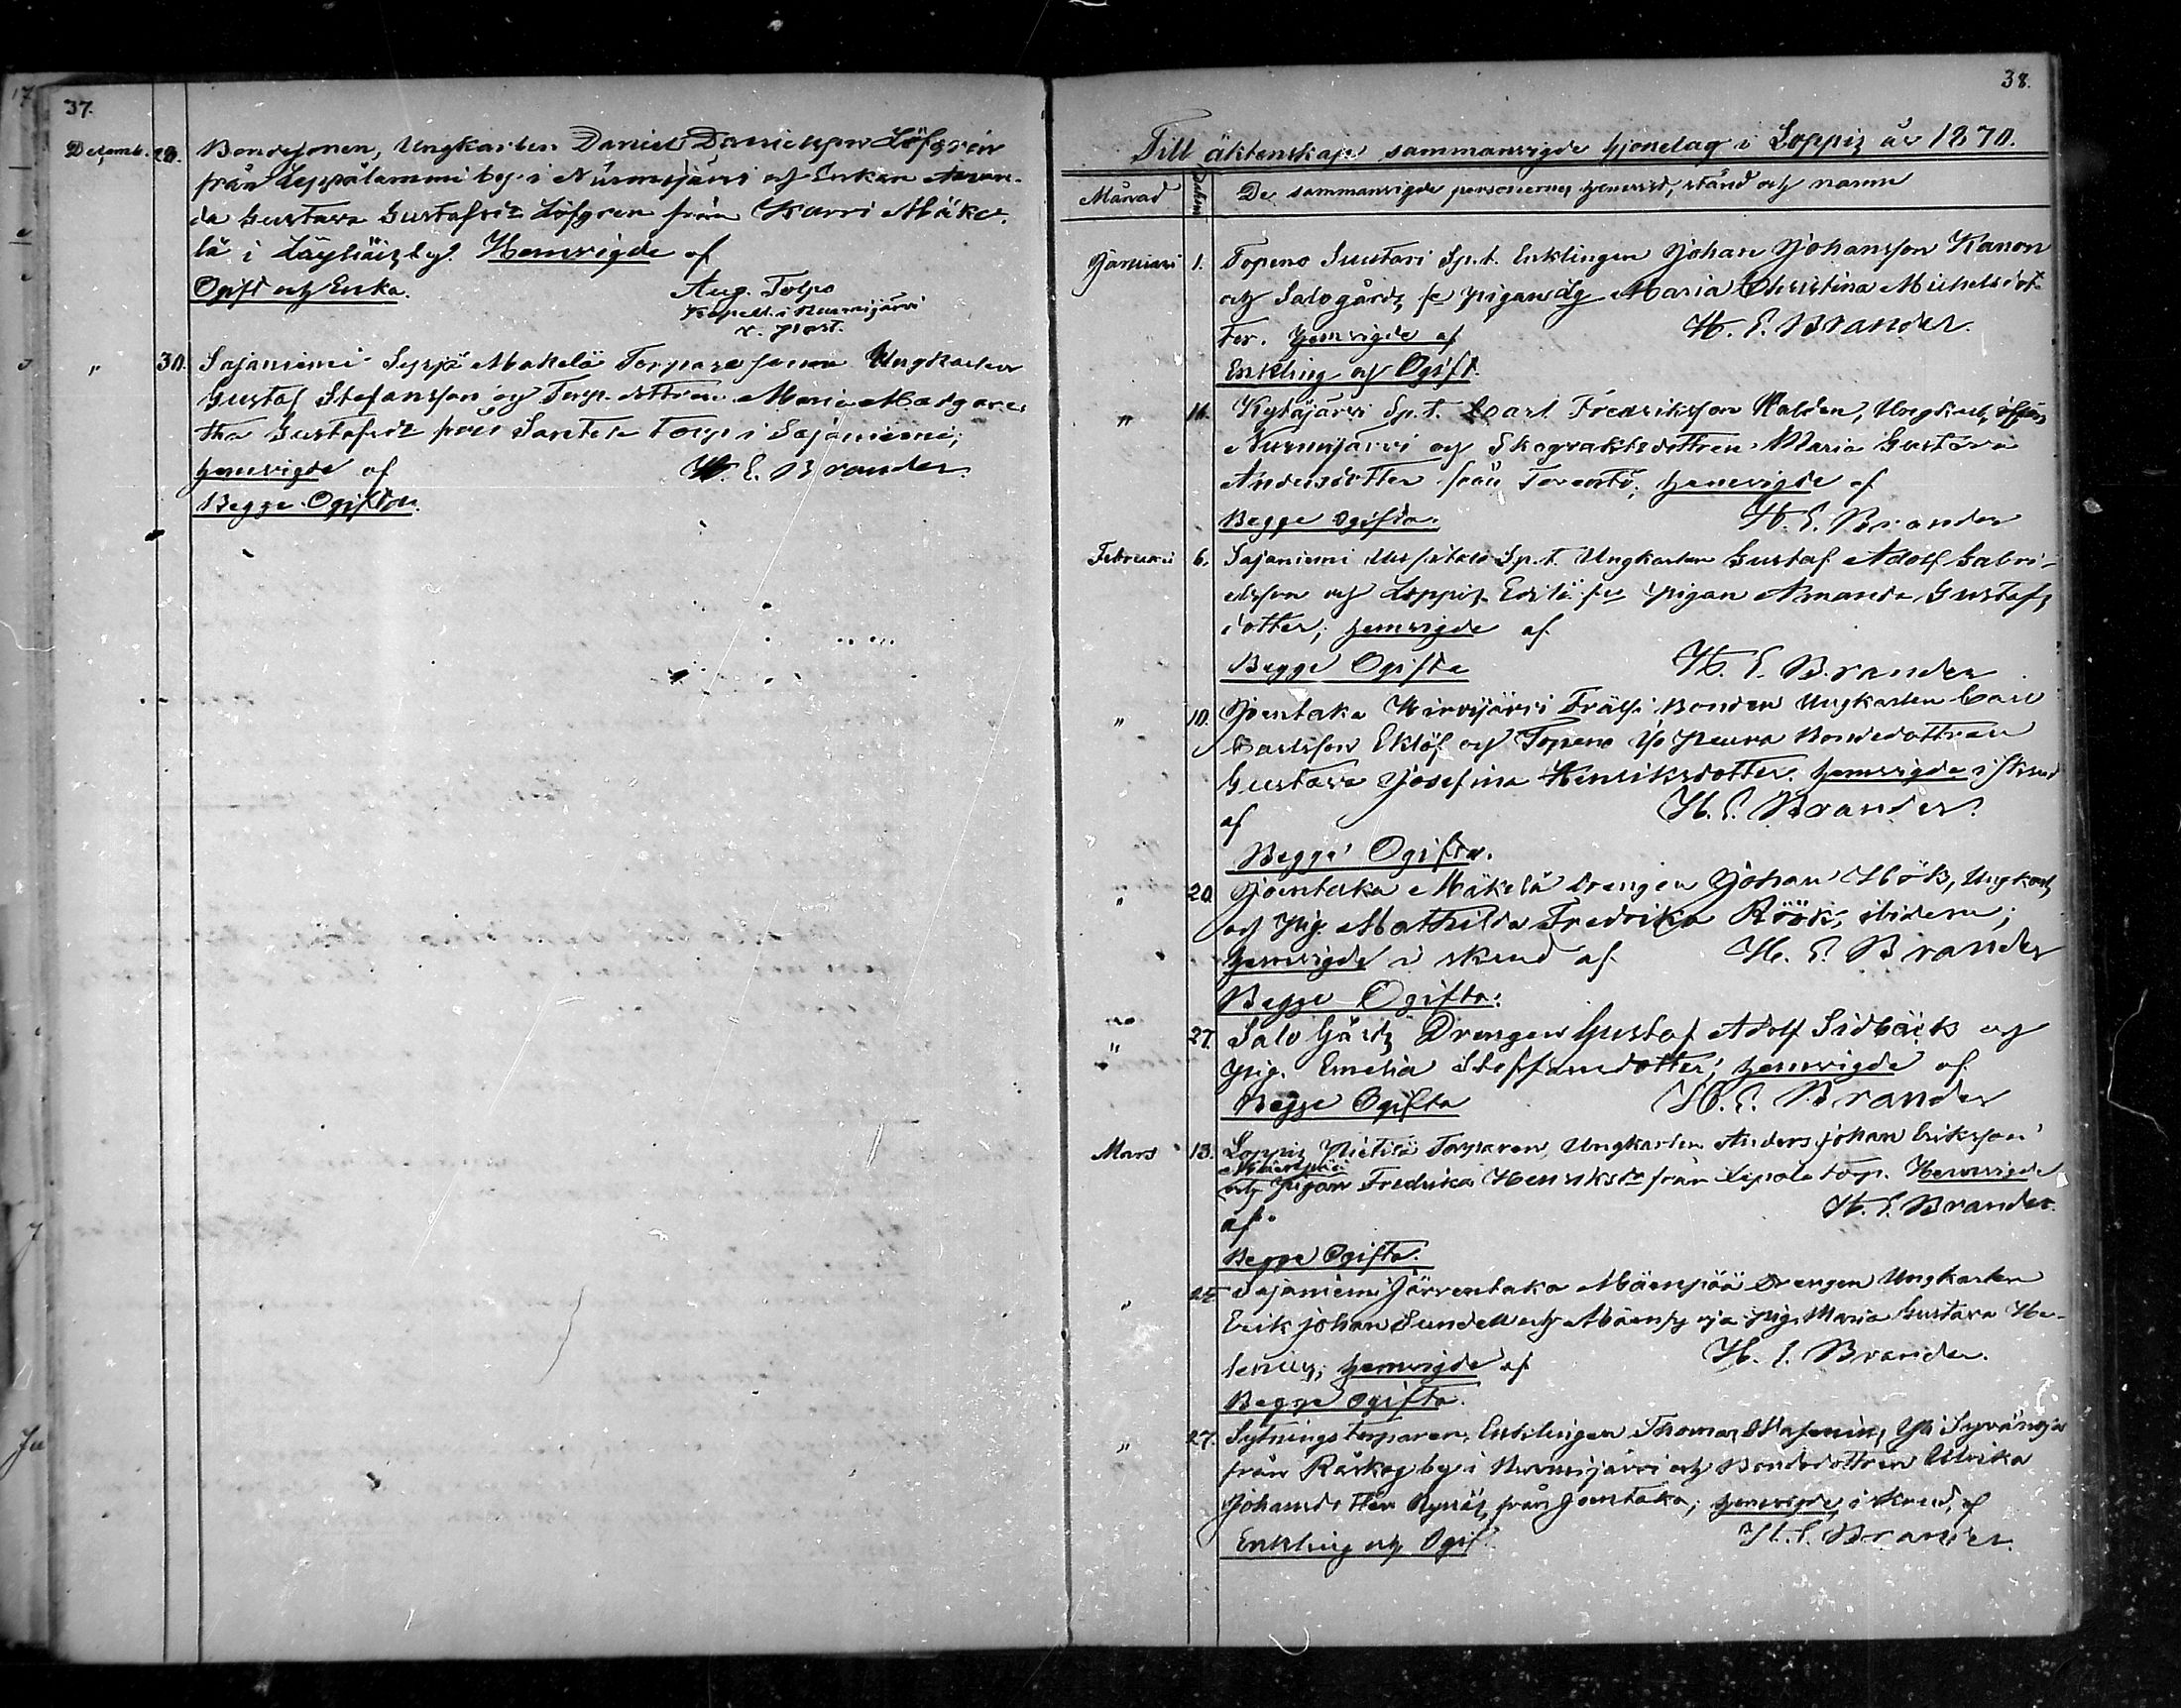 37.
Decemb. 29. Bondesonen, Ungkarlen Daniel Danielsson Löfgren
från Leppälammi by i Nurmijärvi och Enkan Aman-
da Gustava Gustafsdr Löfgren från Karri Mäke-
lä i Läyliäis by. Hemvigde af
Ogift och Enka. Aug. Tolpo
Kapell. i Nurmijärvi
v. past.
" 30. Sajaniemi Seppä Mäkelä Torparesonen Ungkarlen
Gustaf Stefansson och Torp. dottren Maria Margare-
tha Gustafsdr från Torp i Sajaniemi;
hemvigde af H. E. Brander
Begge Ogifta.
38.
Till äktenskap sammanvigde hjonelag i Loppis år 1870.
Månad Datum De sammanvigde personernes hemvist, stånd och namn
Januari 1. Topeno Suutari Sp.t. Enklingen Johan Johansson Kanon
och Salo gårds pigan Maria Christina Michelsdot-
ter. hemvigde af H. E. Brander.
Enkling och Ogift.
" 16. Kytäjärvi Sp.t. Carl Fredriksson Ungkarl,
Nurmijärvi och Skogvaktsdottren Maria Gustava
Andersdotter från hemvigde af
Begge ogifta. H. E. Brander
Februari 6. Sajaniemi Sp.t. Ungkarlen Gustaf Adolf Gabri-
elsson och Loppis Erilä pigan Amanda Gustafs
dotter; hemvigde af
Begge Ogifta H. E. Brander
" 10. Joentaka Hirvijärvi Frälse Bonden Ungkarlen Carl
Carlsson Eklöf och Topeno Yli Peura Bondedottren
Gustava Josefina Henriksdotter. hemvigde i skrud
af H. E. Brander.
Begge Ogifta.
" 20. Joentaka Mäkelä Drengen Johan Höök, Ungkarl,
och Pig. Mathilda Fredrika Röök, ibidem;
hemvigde i skrud af H. E. Brander
Begge Ogifta.
" 27. Salo Gårds Drengen Gustaf Adolf Sidbäck och
Pig. Emelia Steffansdotter; hemvigde af
Begge Ogifta H. E. Brander
Mars 13. Loppis Pietilä Torparen, Ungkarlen Anders Johan Eriksson
och Pigan Fredrika Henriksdr från Lepola torp. Hemvigde
af H. E. Brander.
Begge Ogifta.
" 25 Sajaniemi Järventaka Mäenpää Drengen Ungkarlen
Erik Johan Sundell och Pig. Maria Gustava He-
lenius; hemvigde af H. E. Brander.
Begge Ogifta.
" 27. Sytnings torparen, Enklingen Thomas
från Råskog by i Nurmijärvi och Bondedottren Ulrika
Johansdotter från Joentaka; hemvigde i skrud, af
Enkling och Ogift. H. E. Brander.